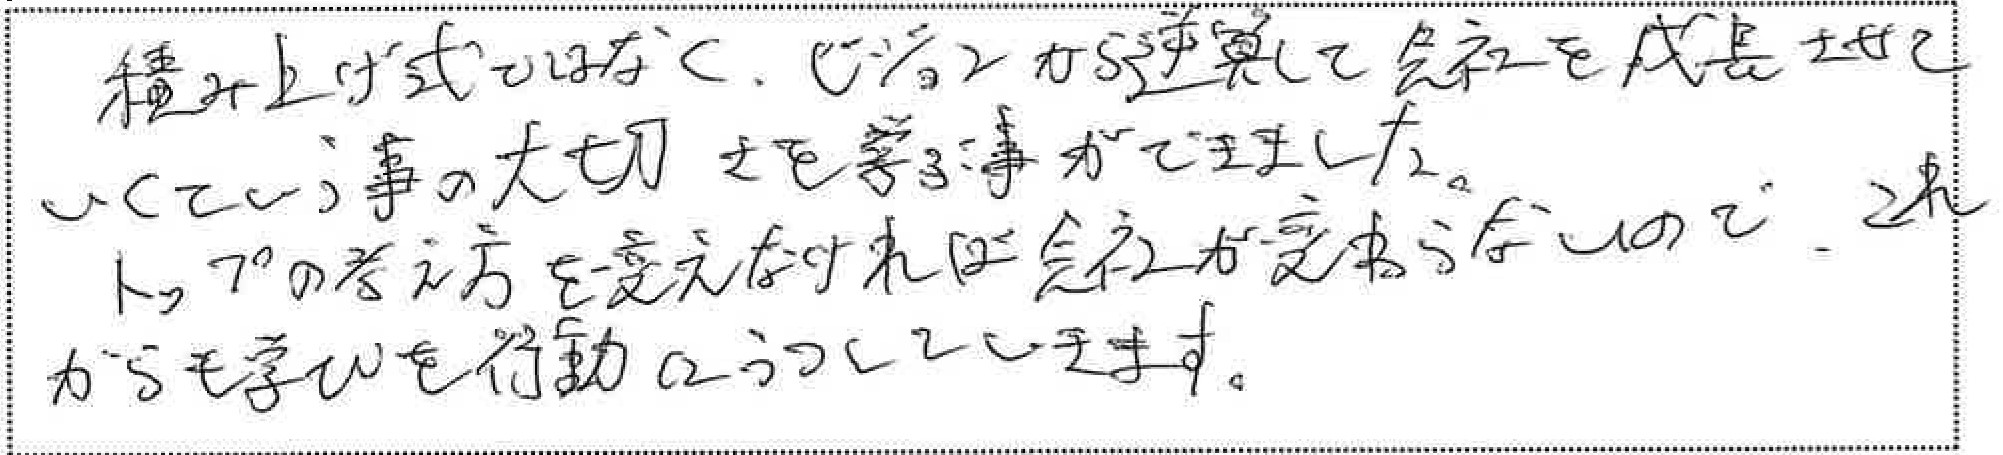 積み上げ式ではなく、ビジョンから逆算して会社を成長させて
いくていう事の大切さを学ぶ事ができました。
トップの考え方を変えなければ会社が変わらないので、これ
からも学びを行動にうつしていきます。